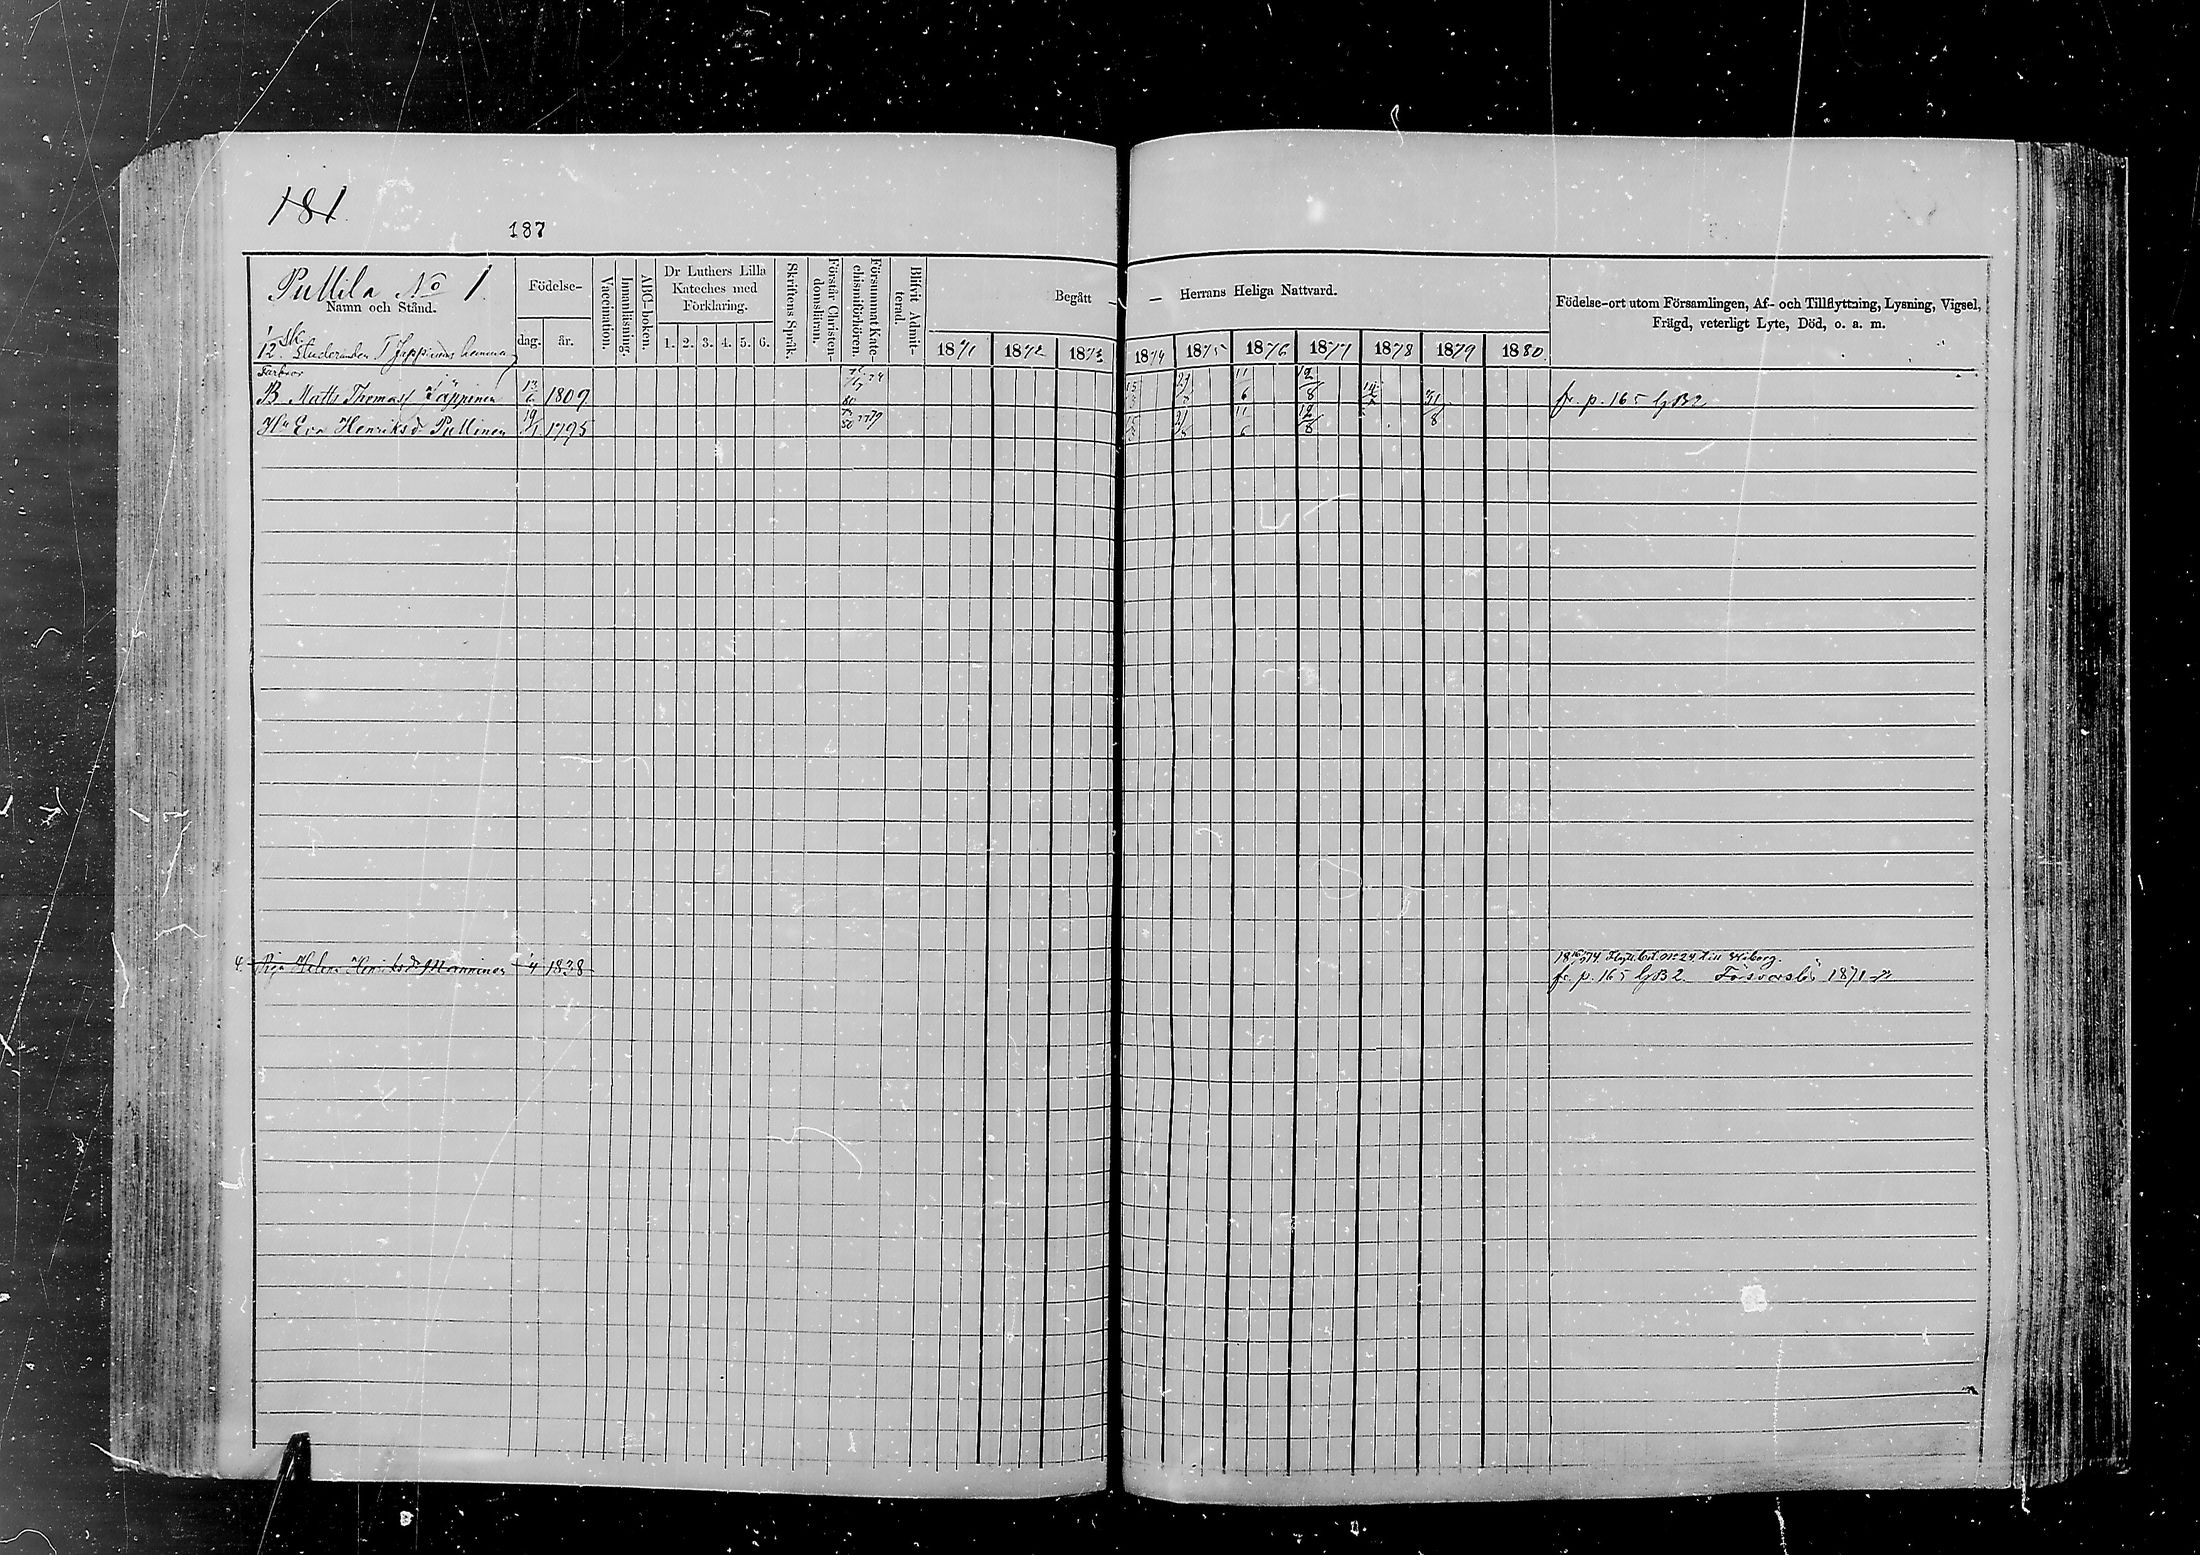 181
187
Pullila No 1
Namn och Stånd.
Födelse-
dag. år.
Vaccination.
Innanläsning.
ABC-boken.
Dr Luthers Lilla
Kateches med
Förklaring.
1. 2. 3. 4. 5. 6.
Skriftens Språk.
Förstår Christen-
domsläran.
Försummat Kate-
chismiförhören.
Blifvit Admit-
terad.
Begått — — Herrans Heliga Nattvard.
1871 1872 1873 1874 1875 1876 1877 1878 1879 1880
Födelse-ort utom Församlingen, Af- och Tillflyttning, Lysning, Vigsel,
Frägd, veterligt Lyte, Död, o. a. m.
12 Studeranden T Jäppinens hemman
Farbror
B Matts Thomass Jäppinen 13/2 1809 11/6 12/8 fr. p. 165 LgB2
Hu Eva Henriksdr Pullinen 19/1 1795 11/6 12/8 31/8
Pig Helena Henriksdr Manninen 1/4 1838
1874 Flytt.bet. No 24 till Wiborg.
fr. p. 165 LgB2. Försvarslös 1871